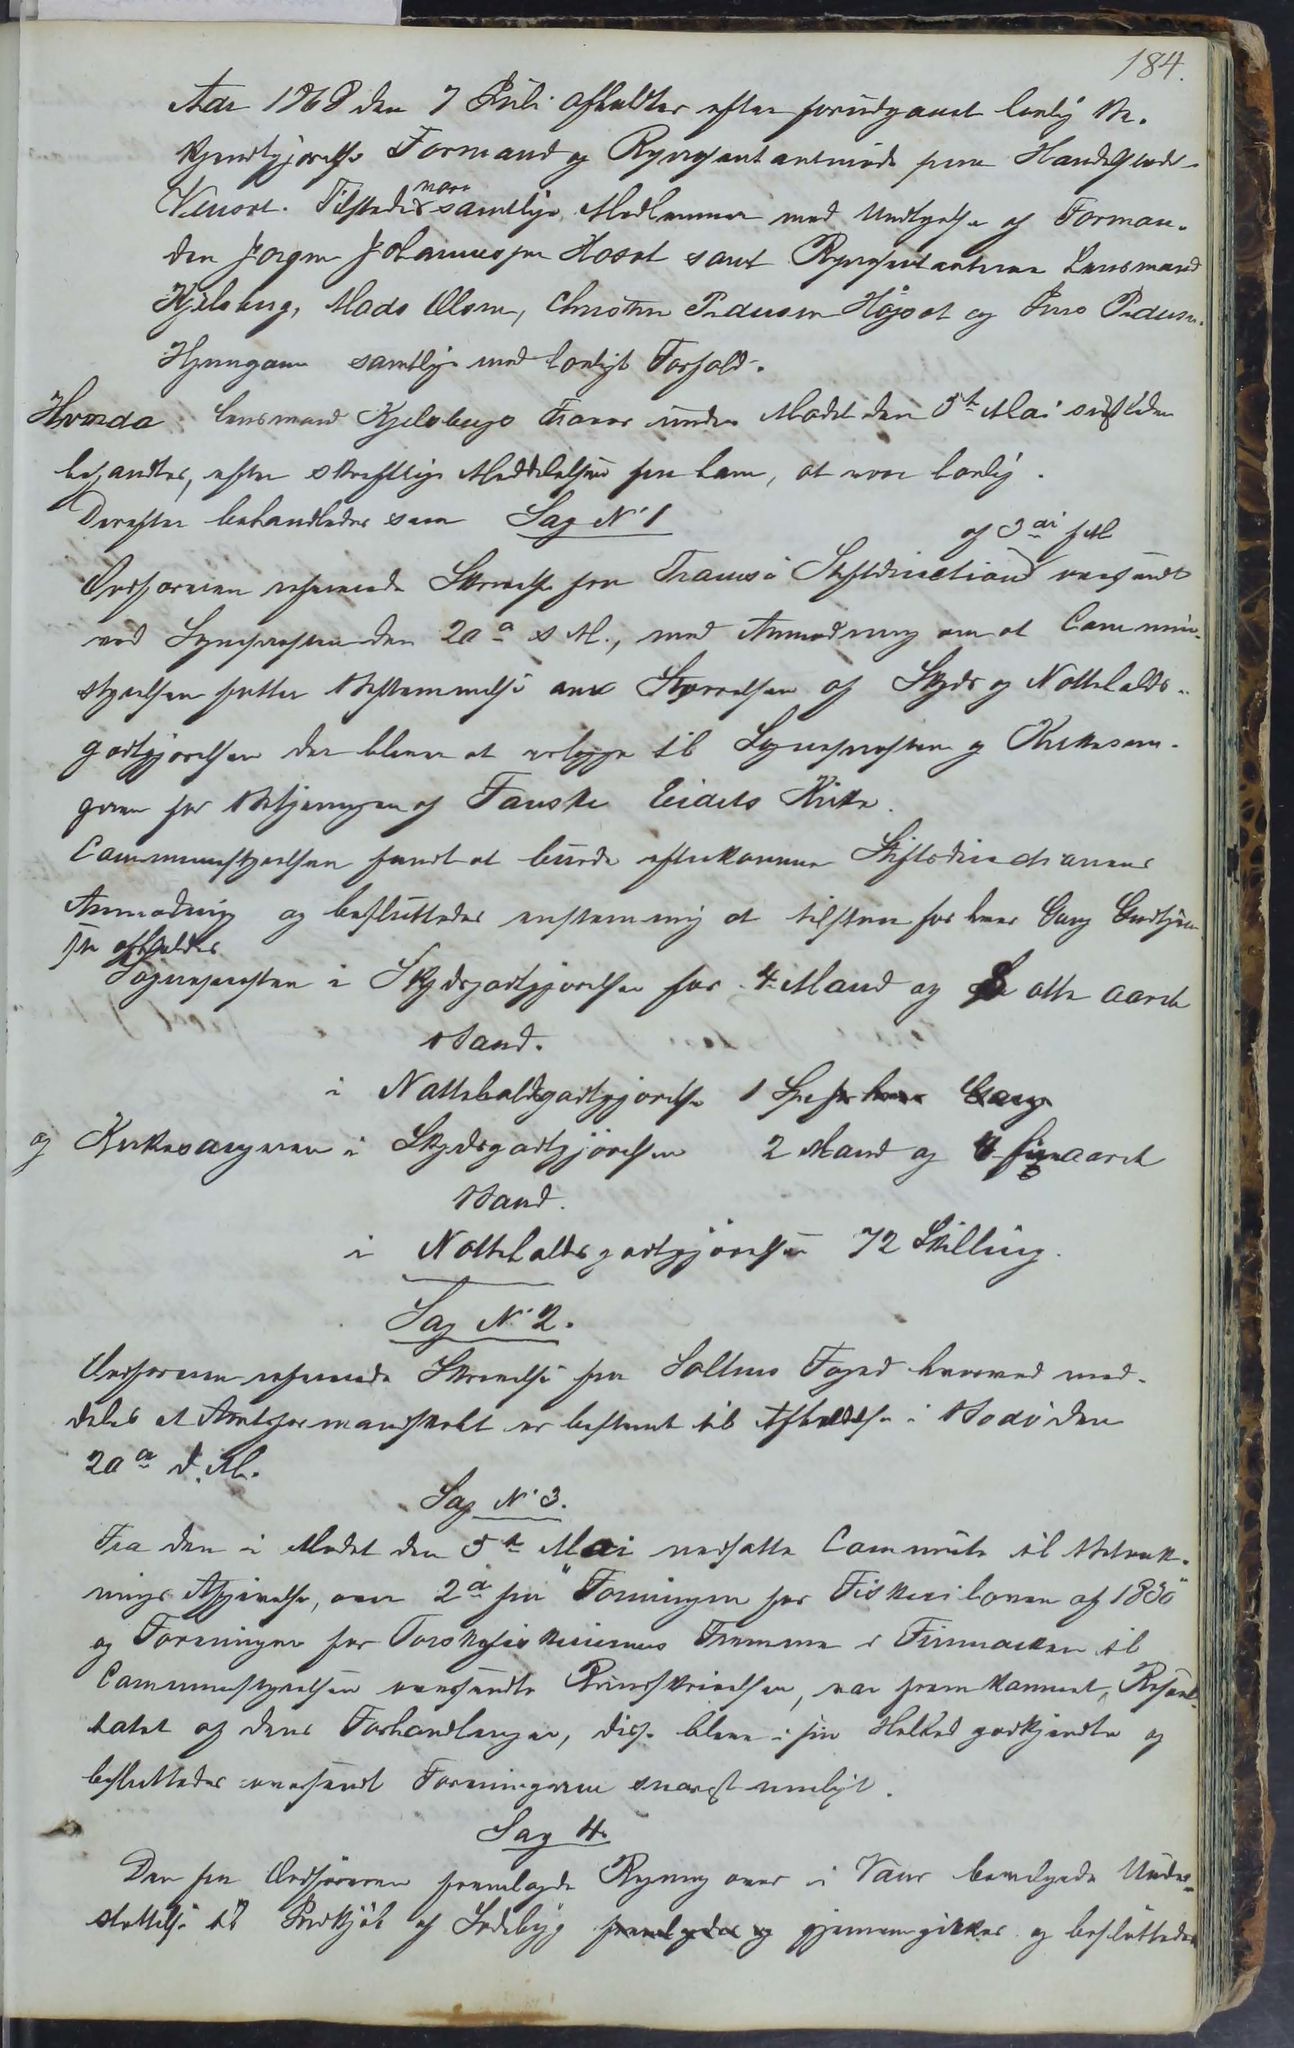 184.
Aar 1868 den 7 Juli afholdtes efter forudgaaet lovlig Be-
kjendtgjørelse Formand og Repræsentantmøde paa Handelsstedet
Venset. Tilstede vare samtlige Medlemmer med Undtagelse af Forman-
den Jørgen Johannesen Hoset samt Repræsentanterne Lensmand
Kjelsberg, Mads Olsen, Christen Pedersen Højset og Jens Pedersen
samtlige med lovligt Forfald.
Hvorda Lensmand Kjelsbergs Fravær under Mødet den 5te Mai sidstleden
befandtes, efter skriftlige Meddelelser fra ham, at være lovlig.
Derefter behandledes som Sag N. 1
af 3die f M
Ordføreren refererede Skrivelse fra Tromsø Stiftsdirection oversendt
ved Sognepresten den 20de s M., med Anmodning om at Commune-
styrelsen fatter Bestemmelse om Størrelsen af Skyds og Natteholds-
godtgjørelsen der bliver at erlægge til Sognepresten og Kirkesan-
geren for Betjeningen af Fauske Eidets Kirke.
Communestyrelsen fandt at burde efterkomme Stiftsdirectionens
Anmodning og besluttedes enstemmig at tilstaa for hver Gang Gudstjene-
ste afholdes
Sognepresten i Skydsgodtgjørelse for 4 Mand og 8 otte aaret
Baad.
i Natteholdsgodtgjørelse 1 Spd for hver Gang
og Kirkesangeren i Skydsgodtgjørelse 2 Mand og 4 fire aaret
Baad.
i Natteholdsgodtgjørelse 72 Skilling.
Sag N. 2.
Ordføreren refererede Skrivelse fra Saltens Foged hvorved med-
deles at Amtsformandskabet er bestemt til Afholdelse i Bodø den
20de d. M.
Sag N. 3.
Fra den i Mødet den 5te Mai nedsatte Committe til Betænk-
nings Afgivelse, over 2de fra "Foreningen for Fiskeriloven af 1830"
og Foreningen for Torskefiskeriernes Fremme i Finmarken til
Communestyrelsen oversendte Rundskrivelser, var fremkommet, Resul-
tatet af dens Forhandlinger, disse bleve i sin Helhed godkjendte og
besluttedes oversendt Foreningerne snarest muligt.
Sag 4.
Den fra Ordføreren fremlagde Regning over i Vaar bevilgede Under-
støttelse til Indkjøb af Sædebyg fremlagdes og gjennemgikkes og besluttedes